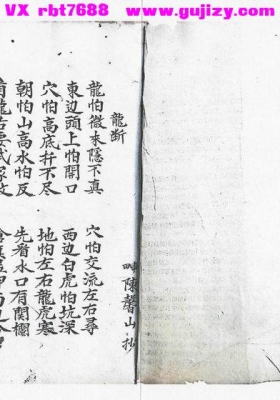 VX rbt7688 www.gujizy.com
陳馨山抄
龍断
龍怕微來隱不真 穴怕交流左右尋
東边頭上怕開口 西边白虎怕坑深
穴怕高底并不尽 地怕左右龍虎寒
朝怕山高水怕反 先看水口有関欄
VX rbt7688 www.gujizy.com